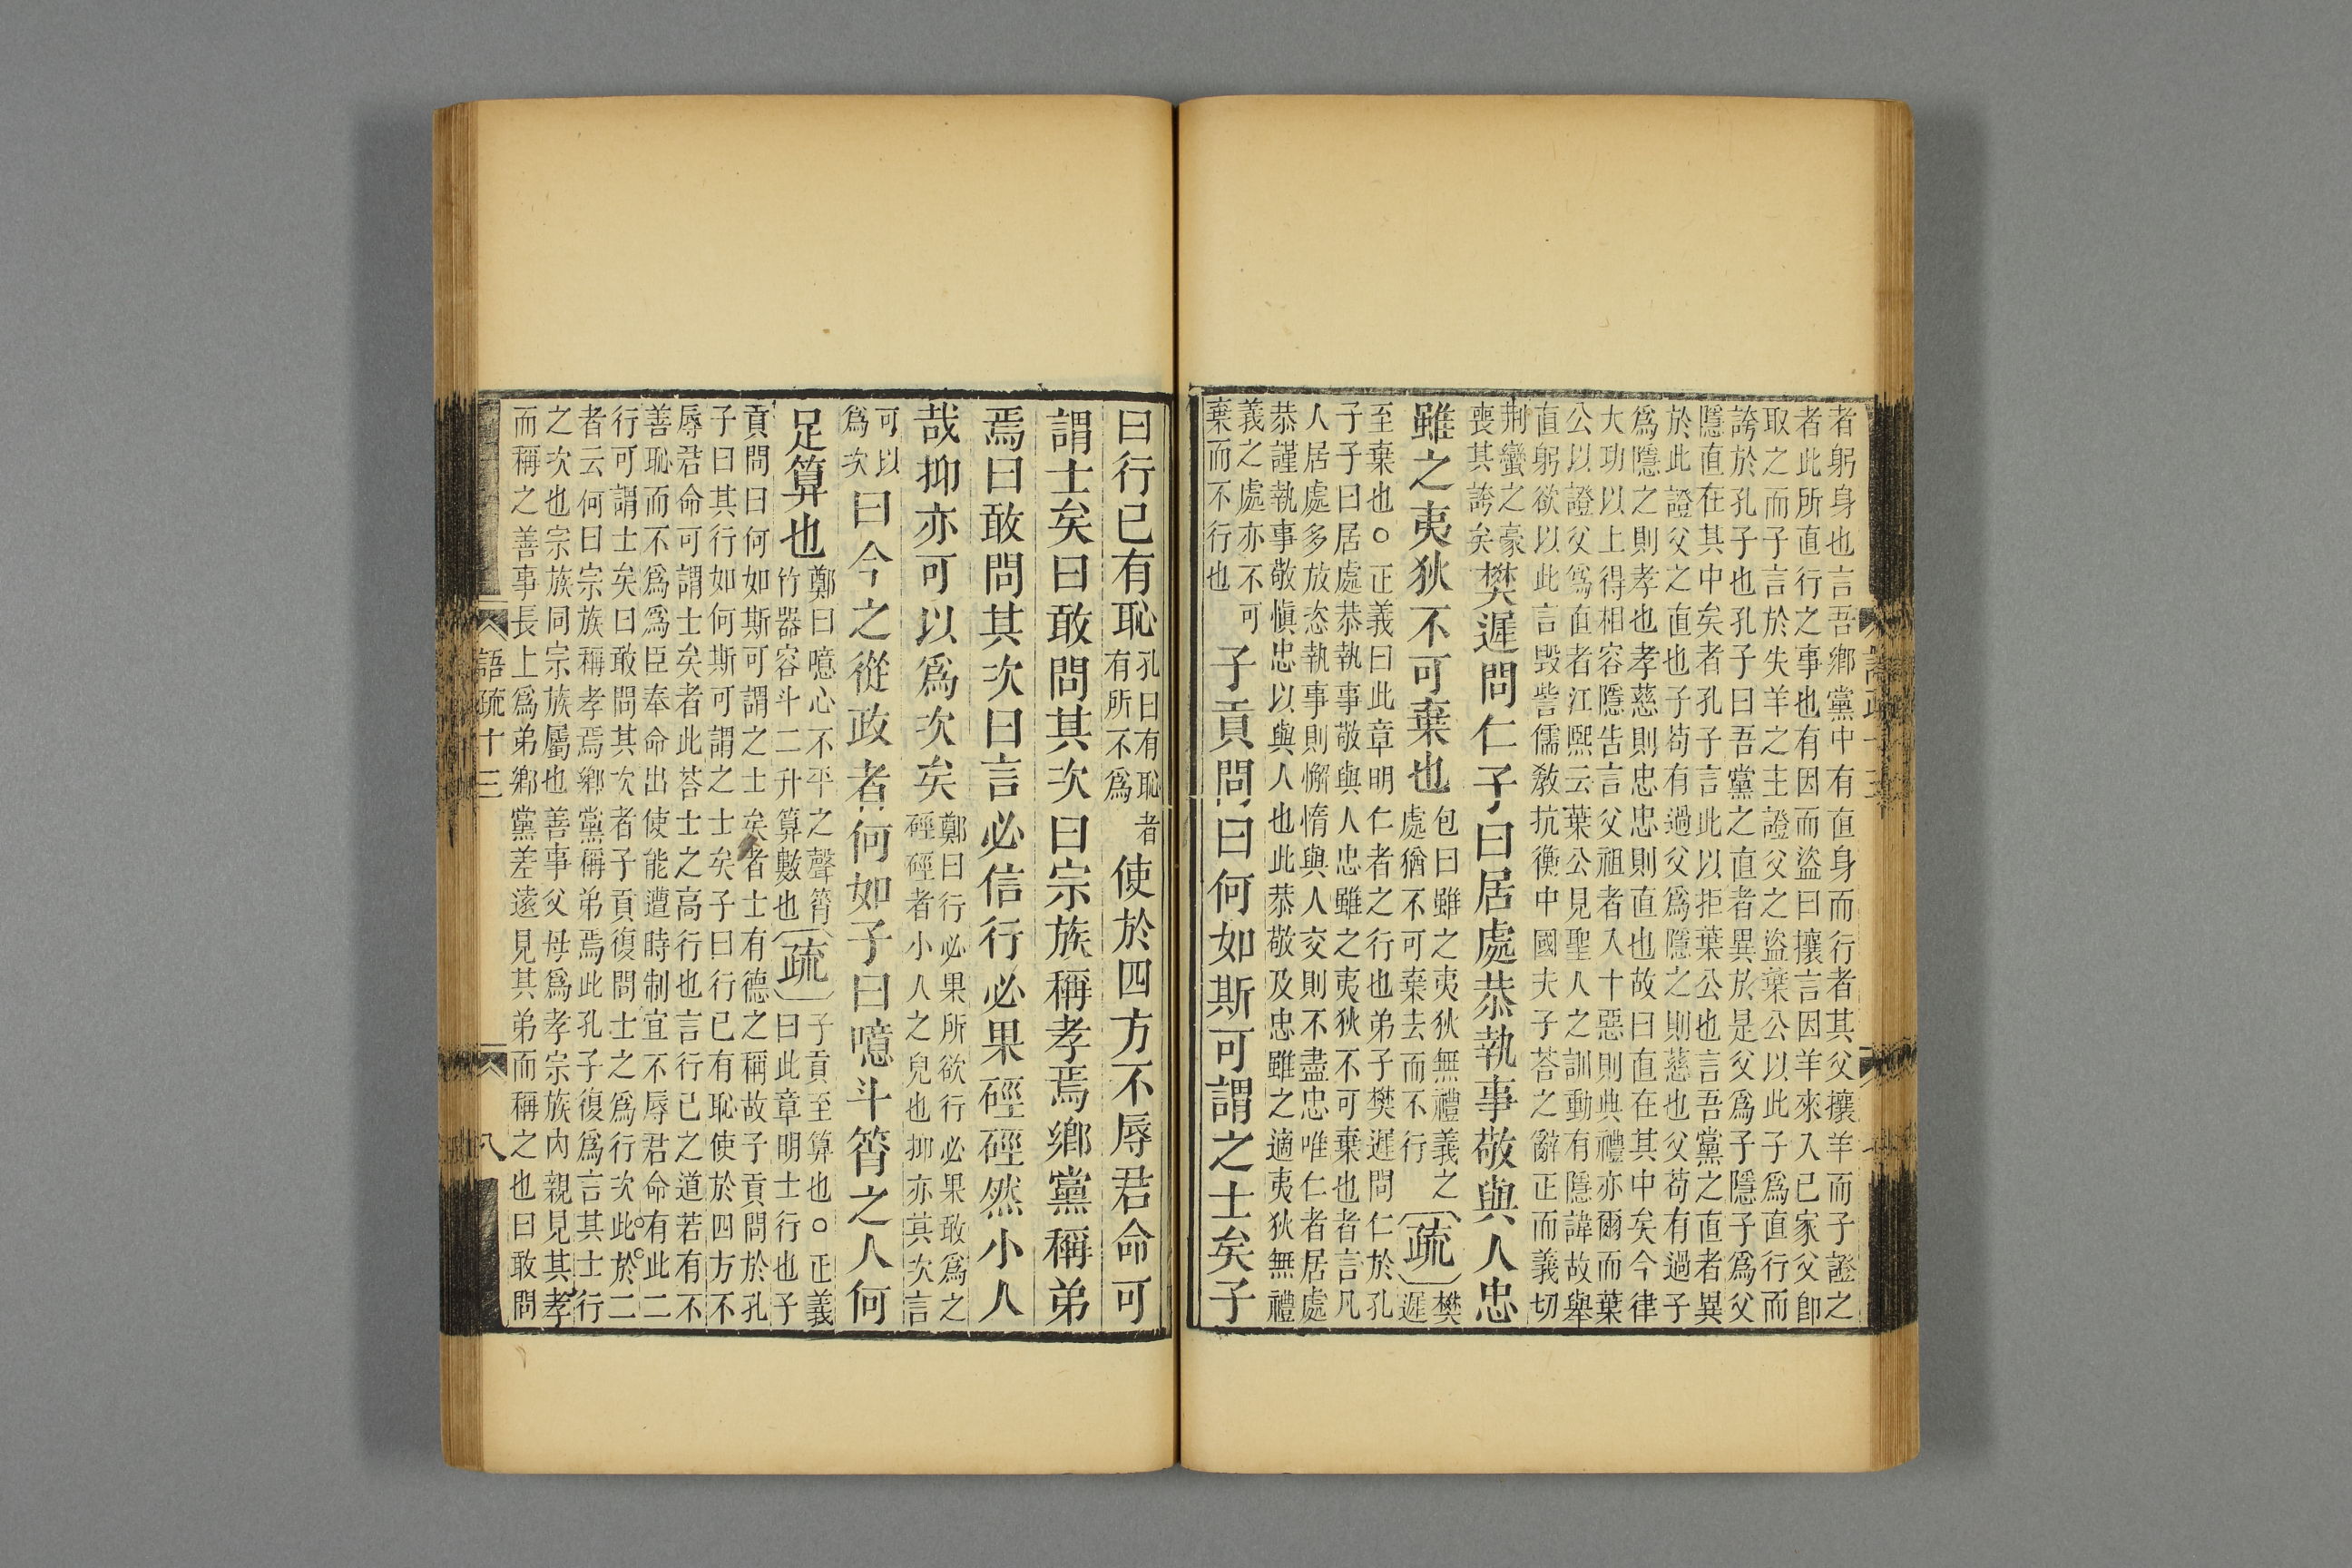 者躬身也言吾鄉黨中有直身而行者其父攘羊而子證之
者此所直行之事也有因而盜曰攘言因羊來入己家父卽
取之而子言於失羊之主證父之盜葉公以此子爲直行而
誇於孔子也孔子曰吾黨之直者異於是父爲子隱子爲父
隱直在其中矣者孔子言此以拒葉公也言吾黨之直者異
於此證父之直也子苟有過父爲隱之則慈也父苟有過子
爲隱之則孝也孝慈則忠忠則直也故曰直在其中矣今律
大功以上得相容隱告言父祖者入十惡則典禮亦爾而葉
公以證父爲直者江熙云葉公見聖人之訓動有隱諱故舉
直躬欲以此言毀訾儒敎抗衡中國夫子荅之辭正而義切
荆蠻之豪
喪其誇矣
樊遲問仁子曰居處恭執事敬與人忠
雖之夷狄不可棄也
包曰雖之夷狄無禮義之
處猶不可棄去而不行
疏
樊
遲
至棄也○正義曰此章明仁者之行也弟子樊遲問仁於孔
子子曰居處恭執事敬與人忠雖之夷狄不可棄也者言凡
人居處多放恣執事則懈惰與人交則不盡忠唯仁者居處
恭謹執事敬愼忠以與人也此恭敬及忠雖之適夷狄無禮
義之處亦不可
棄而不行也
子貢問曰何如斯可謂之士矣子
曰行己有恥
孔曰有恥者
有所不爲
使於四方不辱君命可
謂士矣曰敢問其次曰宗族稱孝焉鄉黨稱弟
焉曰敢問其次曰言必信行必果硜硜然小人
哉抑亦可以爲次矣
鄭曰行必果所欲行必果敢爲之
硜硜者小人之皃也抑亦其次言
可以
爲次
曰今之從政者何如子曰噫斗筲之人何
足算也
鄭曰噫心不平之聲筲
竹器容斗二升算數也
疏
子貢至算也○正義
曰此章明士行也子
貢問曰何如斯可謂之士矣者士有德之稱故子貢問於孔
子曰其行如何斯可謂之士矣子曰行己有恥使於四方不
辱君命可謂士矣者此荅士之高行也言行己之道若有不
善恥而不爲爲臣奉命出使能遭時制宜不辱君命有此二
行可謂士矣曰敢問其次者子貢復問士之爲行次此於二
者云何曰宗族稱孝焉鄉黨稱弟焉此孔子復爲言其士行
之次也宗族同宗族屬也善事父母爲孝宗族內親見其孝
而稱之善事長上爲弟鄉黨差遠見其弟而稱之也曰敢問
語疏十三
八